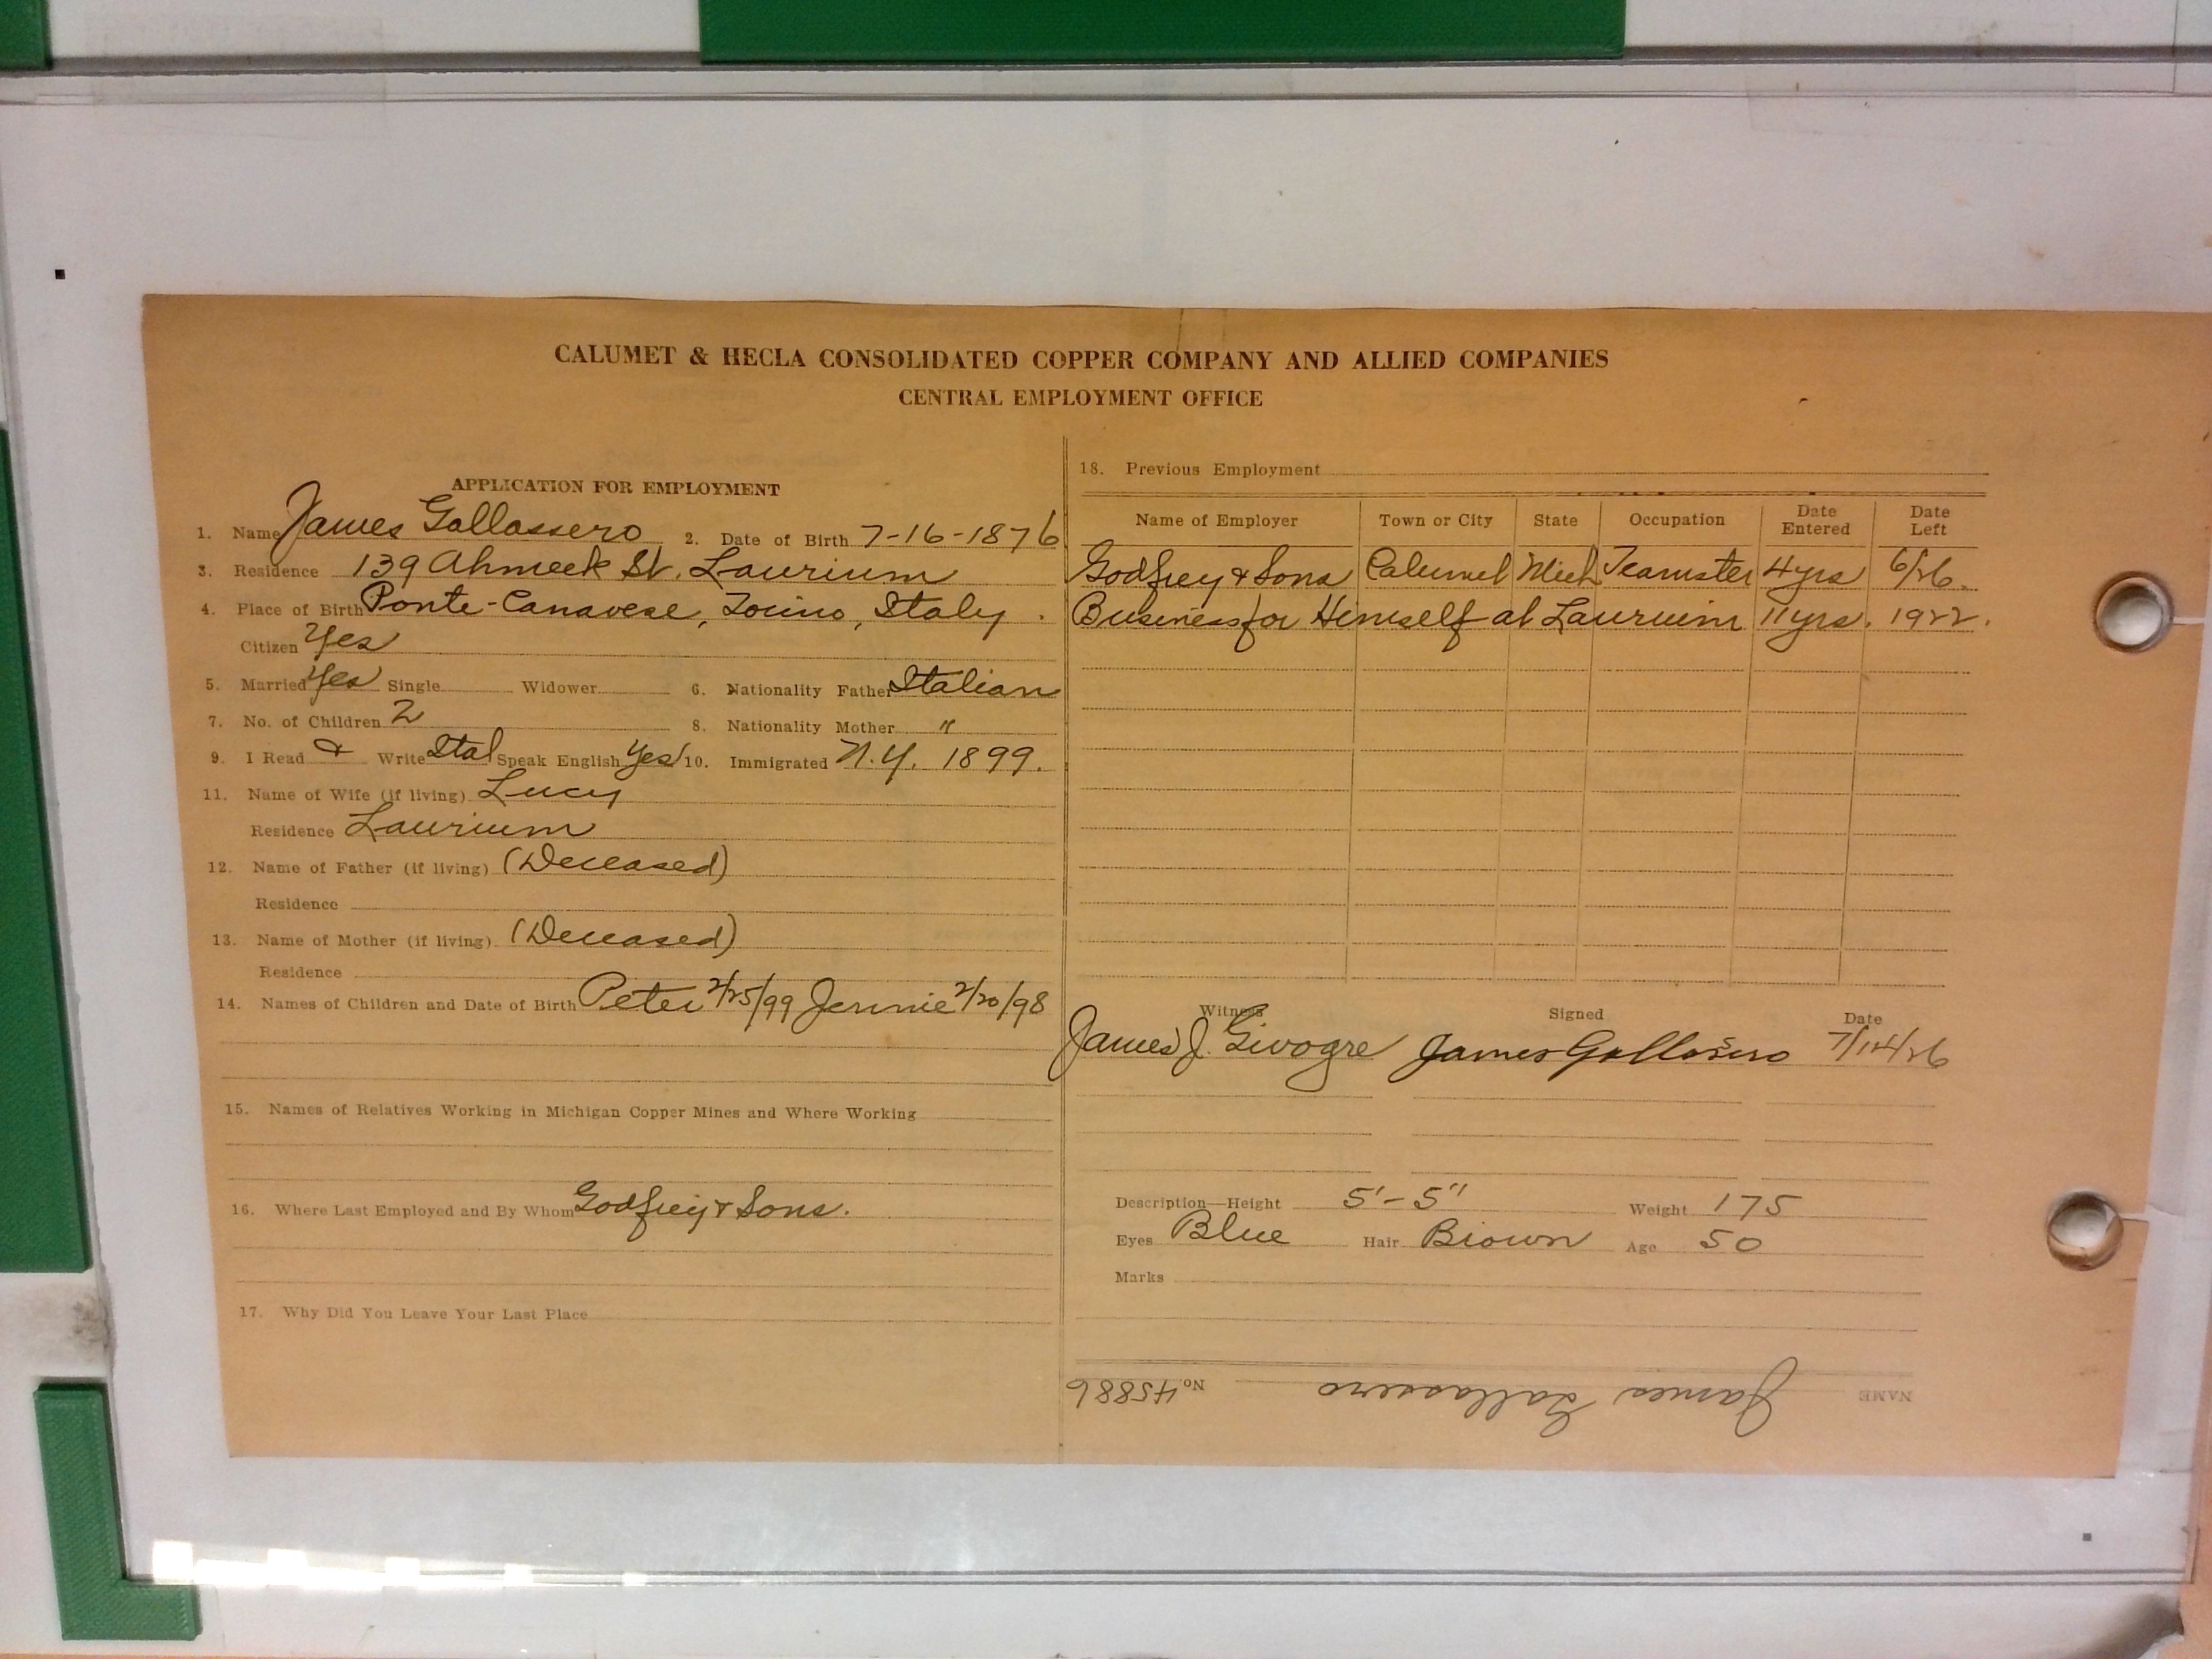 CALUMET & HECLA CONSOLIDATED COPPER COMPANY AND ALLIED COMPANIES
CENTRAL EMPLOYMENT OFFICE
APPLICATION FOR EMPLOYMENT
1. Name James Gallassero 2. Date of Birth 7-16-1876
3. Residence 139 Ahmeek St. Laurium
4. Place of Birth Ponte-Canavese, Torino, Italy.
Citizen Yes
5. Married Yes Single Widower 6. Nationality Father Italian
7. No. of Children 2 8. Nationality Mother "
9. I Read & Write Ital Speak English Yes 10. Immigrated N.Y. 1899.
11. Name of Wife (if living) Lucy
Residence Laurium
12. Name of Father (if living) (Deceased)
Residence
13. Name of Mother (if living) (Deceased)
Residence
14. Names of Children and Date of Birth Peter 2/25/99 Jennie 2/20/98
15. Names of Relatives Working in Michigan Copper Mines and Where Working
16. Where Last Employed and By Whom Godfrey & Sons.
17. Why Did You Leave Your Last Place
18. Previous Employment
Name of Employer Town or City State Occupation Date Entered Date Left
Godfrey & Sons Calumet Mich Teamster 4 yrs 6/26.
Business for Himself at Laurium 11 yrs. 1922.
Witness Signed Date
James J. Givogre James Gallassero 7/14/26
Description—Height 5'-5" Weight 175
Eyes Blue Hair Brown Age 50
Marks
NAME James Gallassero No. 45886